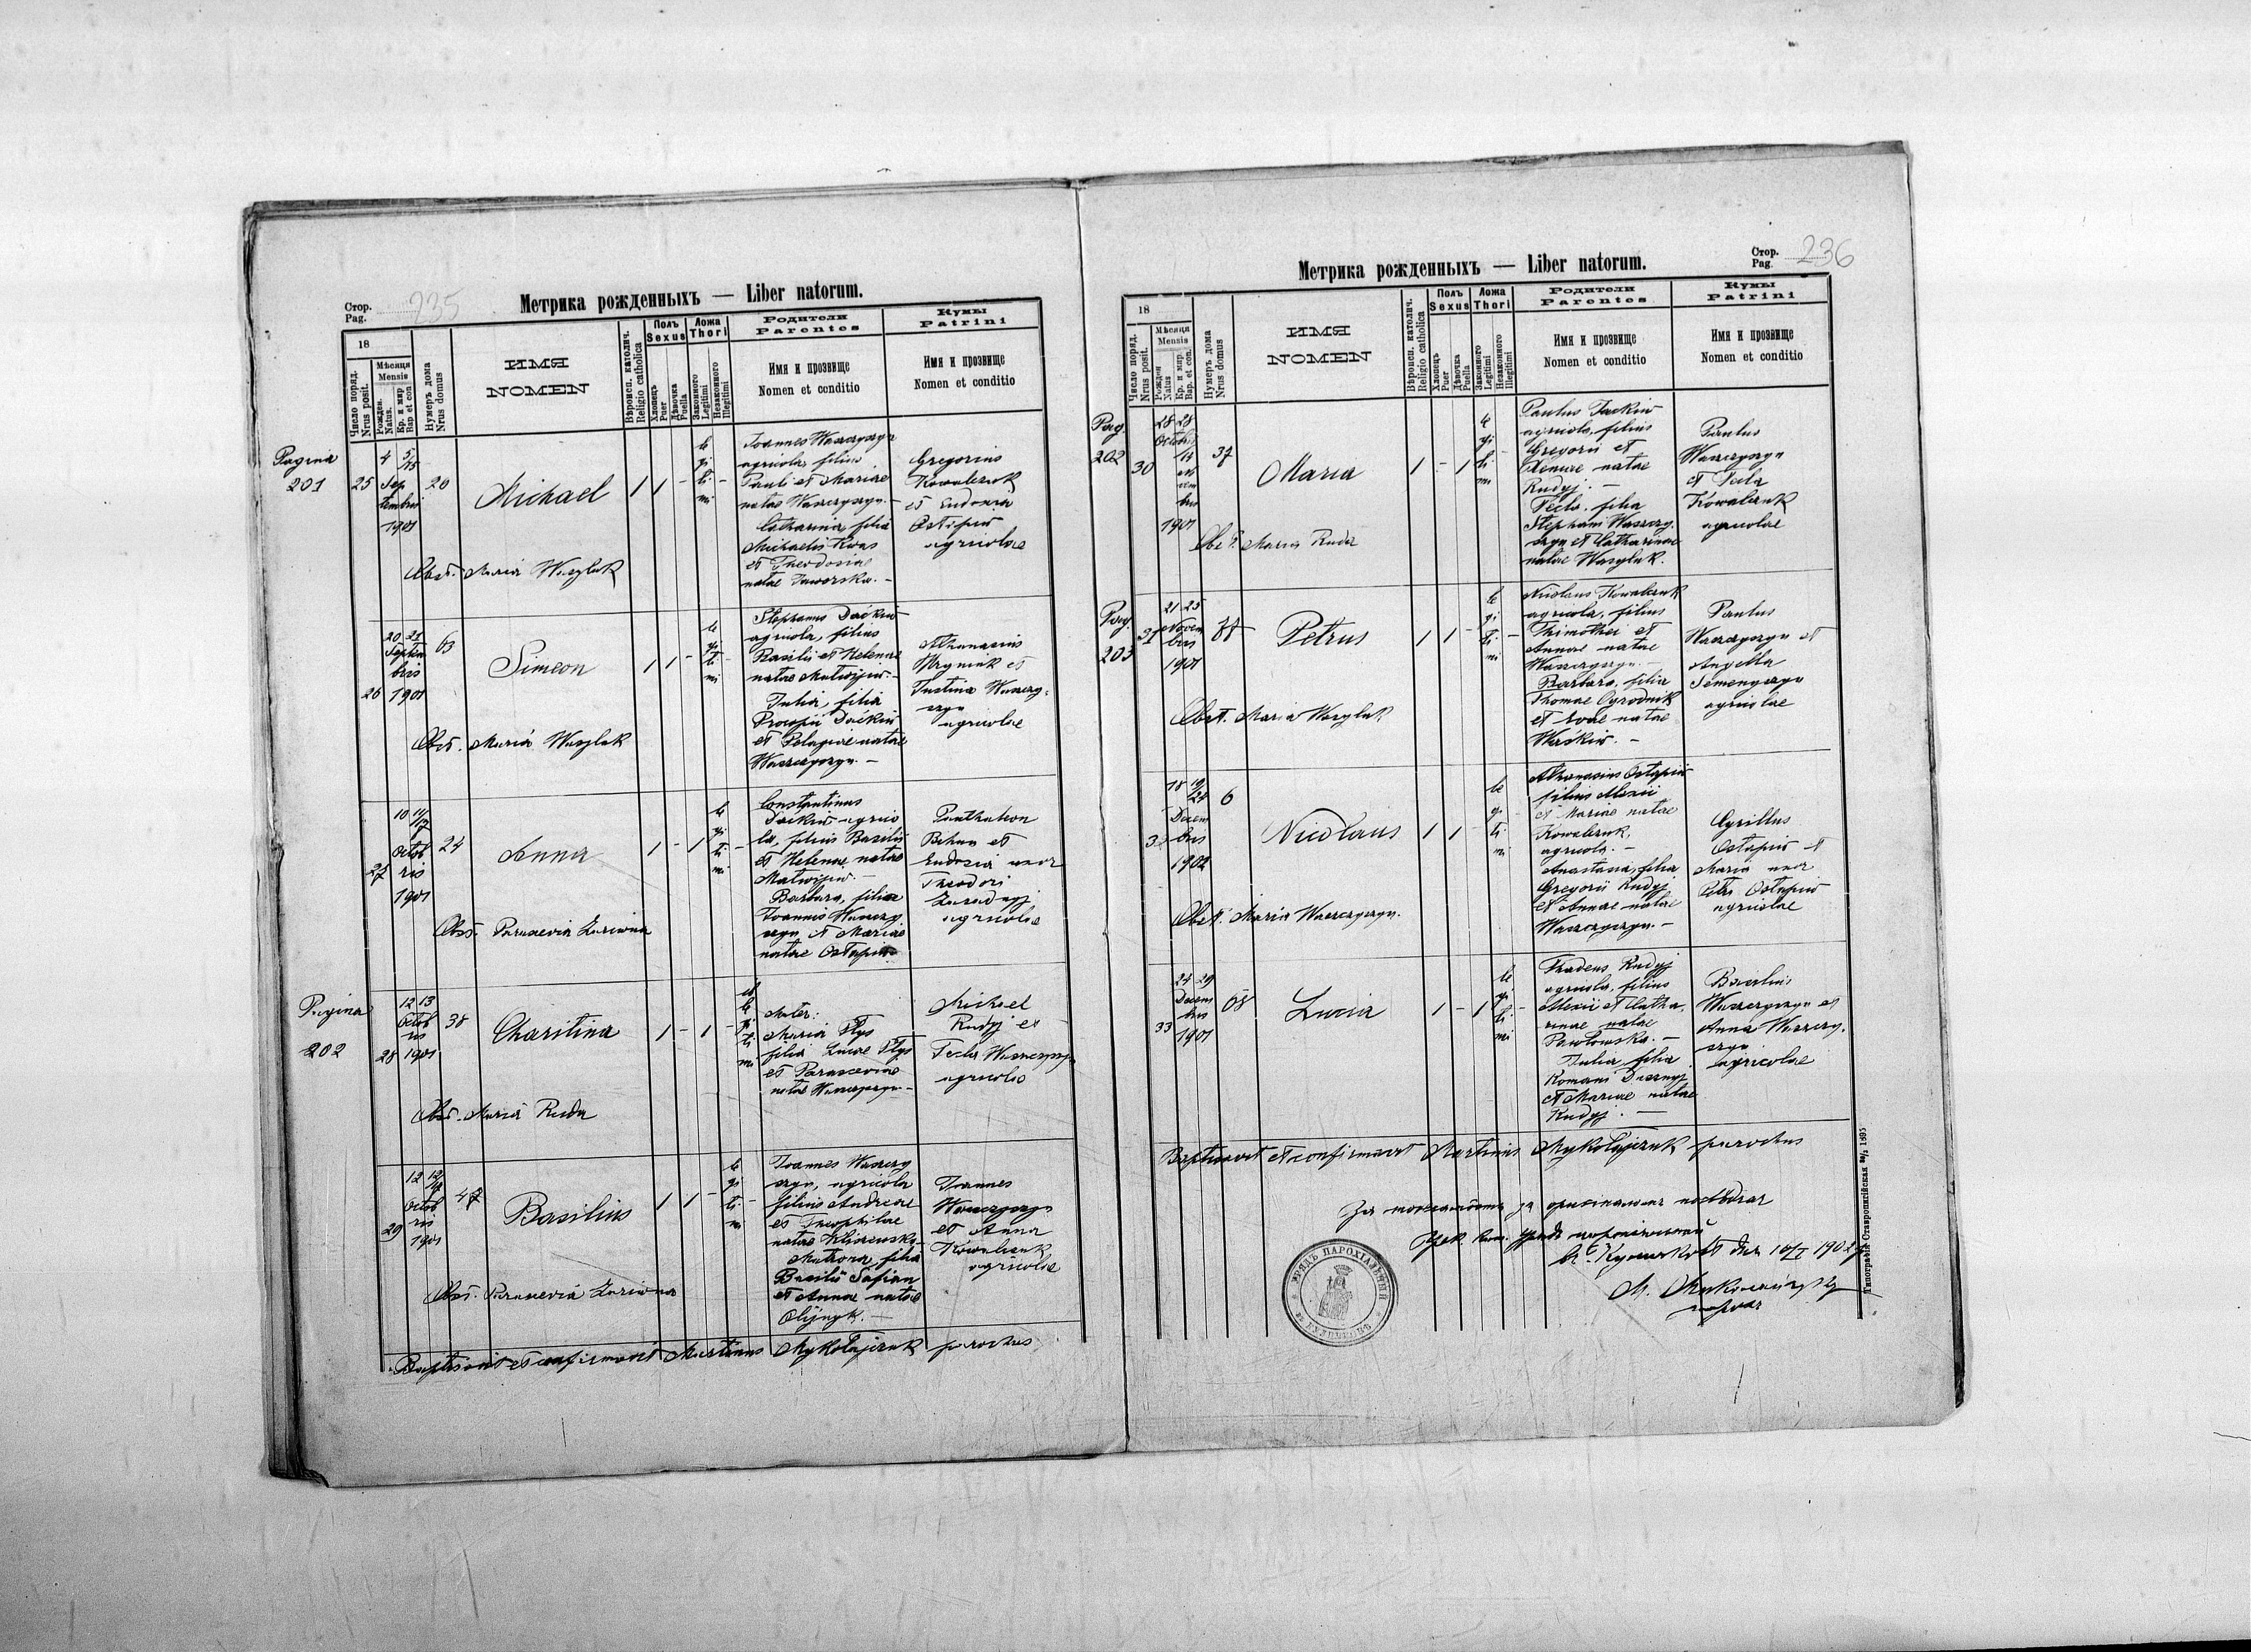 Стор.
Pag.
235
Метрика рожденныхъ — Liber natorum.
18
Число поряд.
Nrus posit.
Мѣсяця
Mensis
Рожден.
Natus.
Кр. и мир
Bap et con
Нумеръ дома
Nrus domus
ИМЯ
NOMEN
Вѣроисп. католич.
Religio catholica
Полъ
Sexus
Хлопець
Puer
Дѣвочка
Puella
Ложа
Thori
Законного
Legitimi
Незаконного
Illegitimi
Родители
Parentes
Имя и прозвище
Nomen et conditio
Кумы
Patrini
Имя и прозвище
Nomen et conditio
Pagina
201
25
4 5/15
Sep
tembris
1901
20
Michael
1 1 -
le
gi
ti
mi
-
Joannes Waszczyszyn
agricola, filius
Pauli et Mariae
natae Waszczyszyn. —
Catharina, filia
Michaelis
et Theodosiae
natae Jaworska. —
Gregorius
Kowalczuk
et Eudoxia
Ostapiw
agricolae
Obst. Maria Wasyluk
26
20 21
Septem
bris
1901
63
Simeon
1 1 -
le
gi
ti
mi
-
Stephanus Daćkiw
agricola, filius
Basilii et Helenae
natae Matwijiw. —
Julia, filia
Procopii Daćkiw
et Pelagiae natae
Waszczyszyn. —
Athanasius
Hryniuk et
Justina Waszczy-
szyn
agricolae
Obst. Maria Wasyluk
27
10 11/17
Octob
ris
1901
24
Anna
1 - 1
le
gi
ti
mi
-
Constantinus
Daćkiw agrico
la, filius Basilii
et Helenae natae
Matwijiw. —
Barbara, filiae
Joannis Waszczy
szyn et Mariae
natae Ostapiw
Panthaleon
Bohun et
Eudoxia uxor
Theodori
agricolae
Obst. Parascevia
Pagina
202
28
12 13
Octob
ris
1901
38
Charitina
1 - 1 -
il
le
gi
ti
mi
Mater:
Maria Flys
filia Lucae Flys
et Parasceviae
natae Waszczyszyn —
Michael
Rudyj et
Tecla Waszczyszyn
agricolae
Obst. Maria Ruda
29
12
Octob
ris
1901
47
Basilius
1 1 -
le
gi
ti
mi
-
Joannes Waszczy
szyn, agricola
filius Andreae
et Theophilae
natae
Matrona, filia
Basilii Safian
et Annae natae
Olijnyk. —
Joannes
Waszczyszyn
et Anna
Kowalczuk
agricolae
Obst. Parascevia
Baptisavit et confirmavit Martinus Mykołajczuk parochus
Стор.
Pag.
236
Метрика рожденныхъ — Liber natorum.
18
Число поряд.
Nrus posit.
Мѣсяця
Mensis
Рожден
Natus
Кр. и мир.
Bap. et con.
Нумеръ дома
Nrus domus
ИМЯ
NOMEN
Вѣроисп. католич.
Religio catholica
Полъ
Sexus
Хлопець
Puer
Дѣвочка
Puella
Ложа
Thori
Законного
Legitimi
Незаконного
Illegitimi
Родители
Parentes
Имя и прозвище
Nomen et conditio
Кумы
Patrini
Имя и прозвище
Nomen et conditio
Pag.
202
30
28 28
Octobris
1901
37
Maria
1 - 1
le
gi
li
mi
-
Paulus Jackiw
agricola, filius
Gregorii et
Xeniae natae
Rudyj. —
Tecla, filia
Stephani Waszczy
szyn et Catharinae
natae Wasyluk.
Paulus
Waszczyszyn
et Tecla
Kowalczuk
agricolae
Obst. Maria Ruda
Pag.
203
31
21 25
Novem
bris
1901
Petrus
1 1 -
le
gi
ti
mi
-
Nicolaus Kowalczuk
agricola, filius
Thimothei et
Annae natae
Waszczyszyn. —
Barbara, filia
Thomae Ogrodnik
et Evae natae
Waśkiw. —
Paulus
Waszczyszyn et
Angella
Semenyszyn
agricolae
Obst. Maria Wasyluk
18 19/24
Decem
bris
1902
6
Nicolaus
1 1 -
le
gi
ti
mi
-
Athanasius Ostapiw
filius Alexii
et Mariae natae
Kowalczuk,
agricola. —
Anastasia, filia
Gregorii Rudyj
et Annae natae
Waszczyszyn. —
Cyrillus
Ostapiw et
Maria uxor
Petri Ostapiw
agricolae
Obst. Maria Waszczyszyn.
33
24 29
Decem
bris
1901
68
Lucia
1 - 1
le
gi
ti
mi
-
Thadeus Rudyj
agricola, filius
Alexii et Catha
rinae natae
Pawłowska. —
Julia, filia
Romani
et Mariae natae
Rudyj. —
Basilius
Waszczyszyn et
Anna Waszczy.
szyn
agricolae
Baptisavit et confirmavit Martinus Mykołajczuk parochus
За
урядъ парохіяльный
дня 16/I 1902
М.
парох
УРЯДЪ ПАРОХІАЛЬНЫЙ
Типографія Ставропигійская 1895